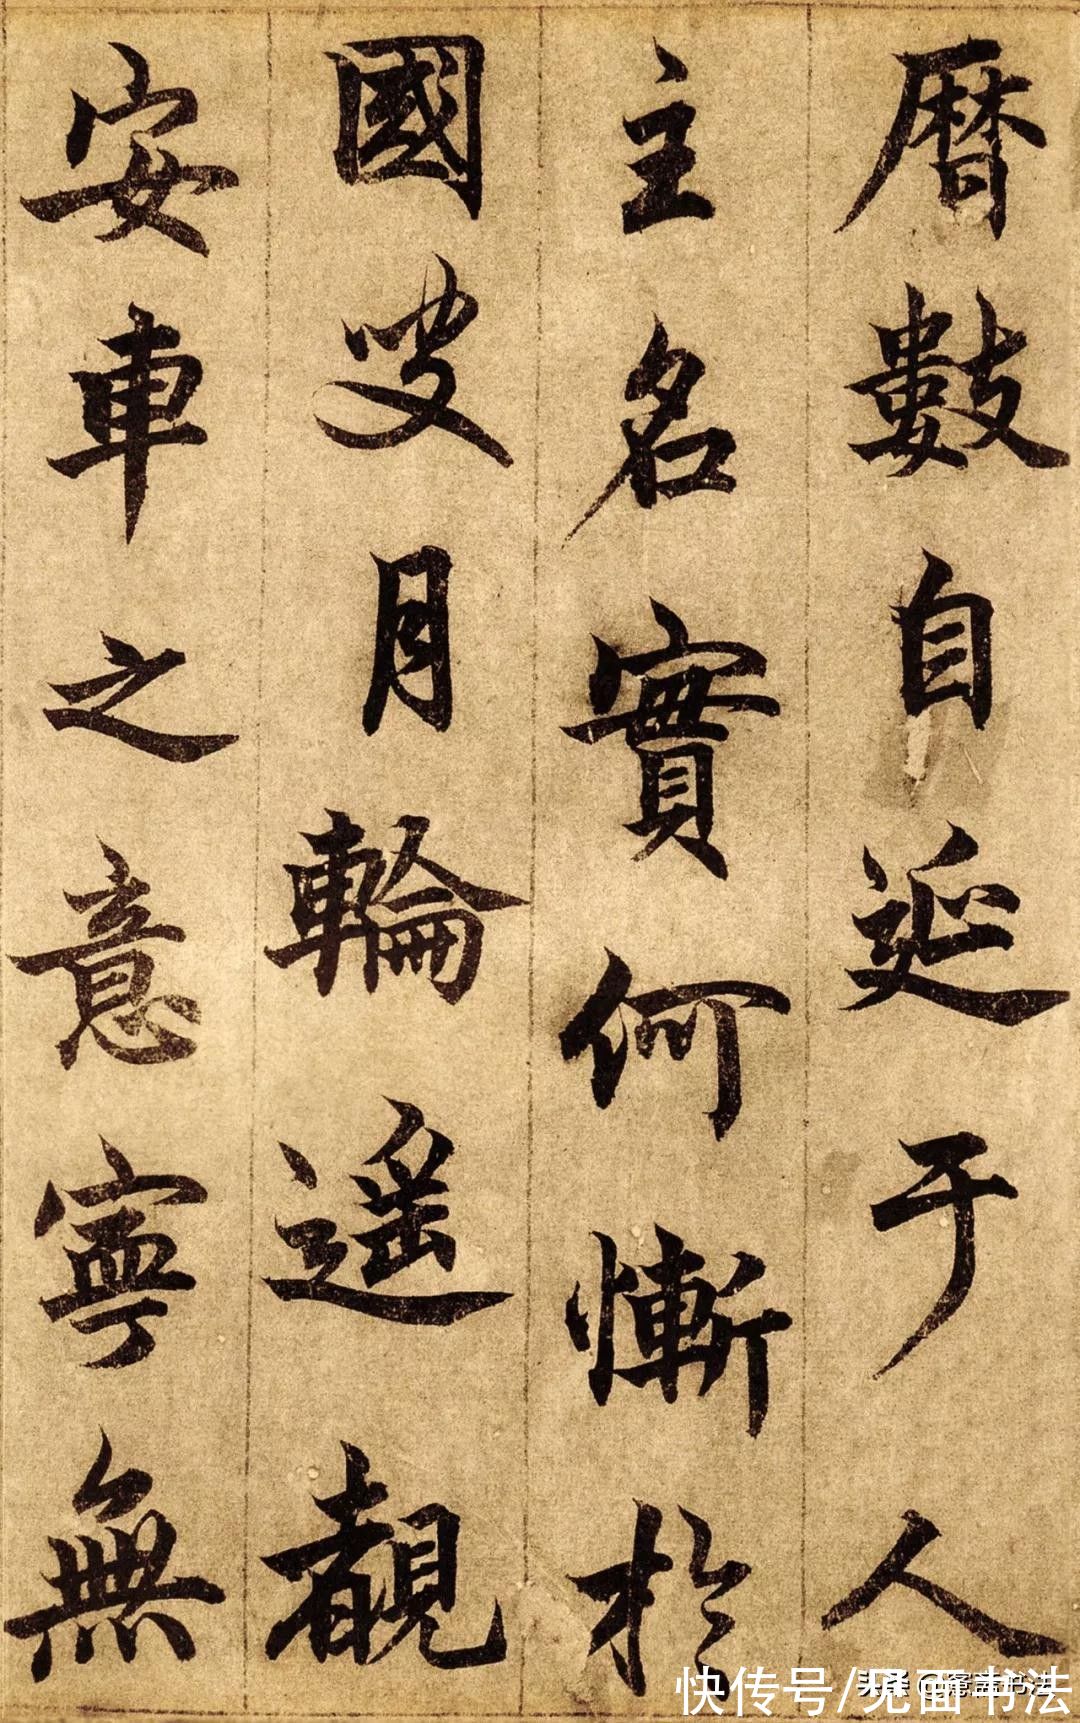 曆數自延于人
主名實何慚於
國叟月輪遥覩
安車之意寧無
快传号/见面书法